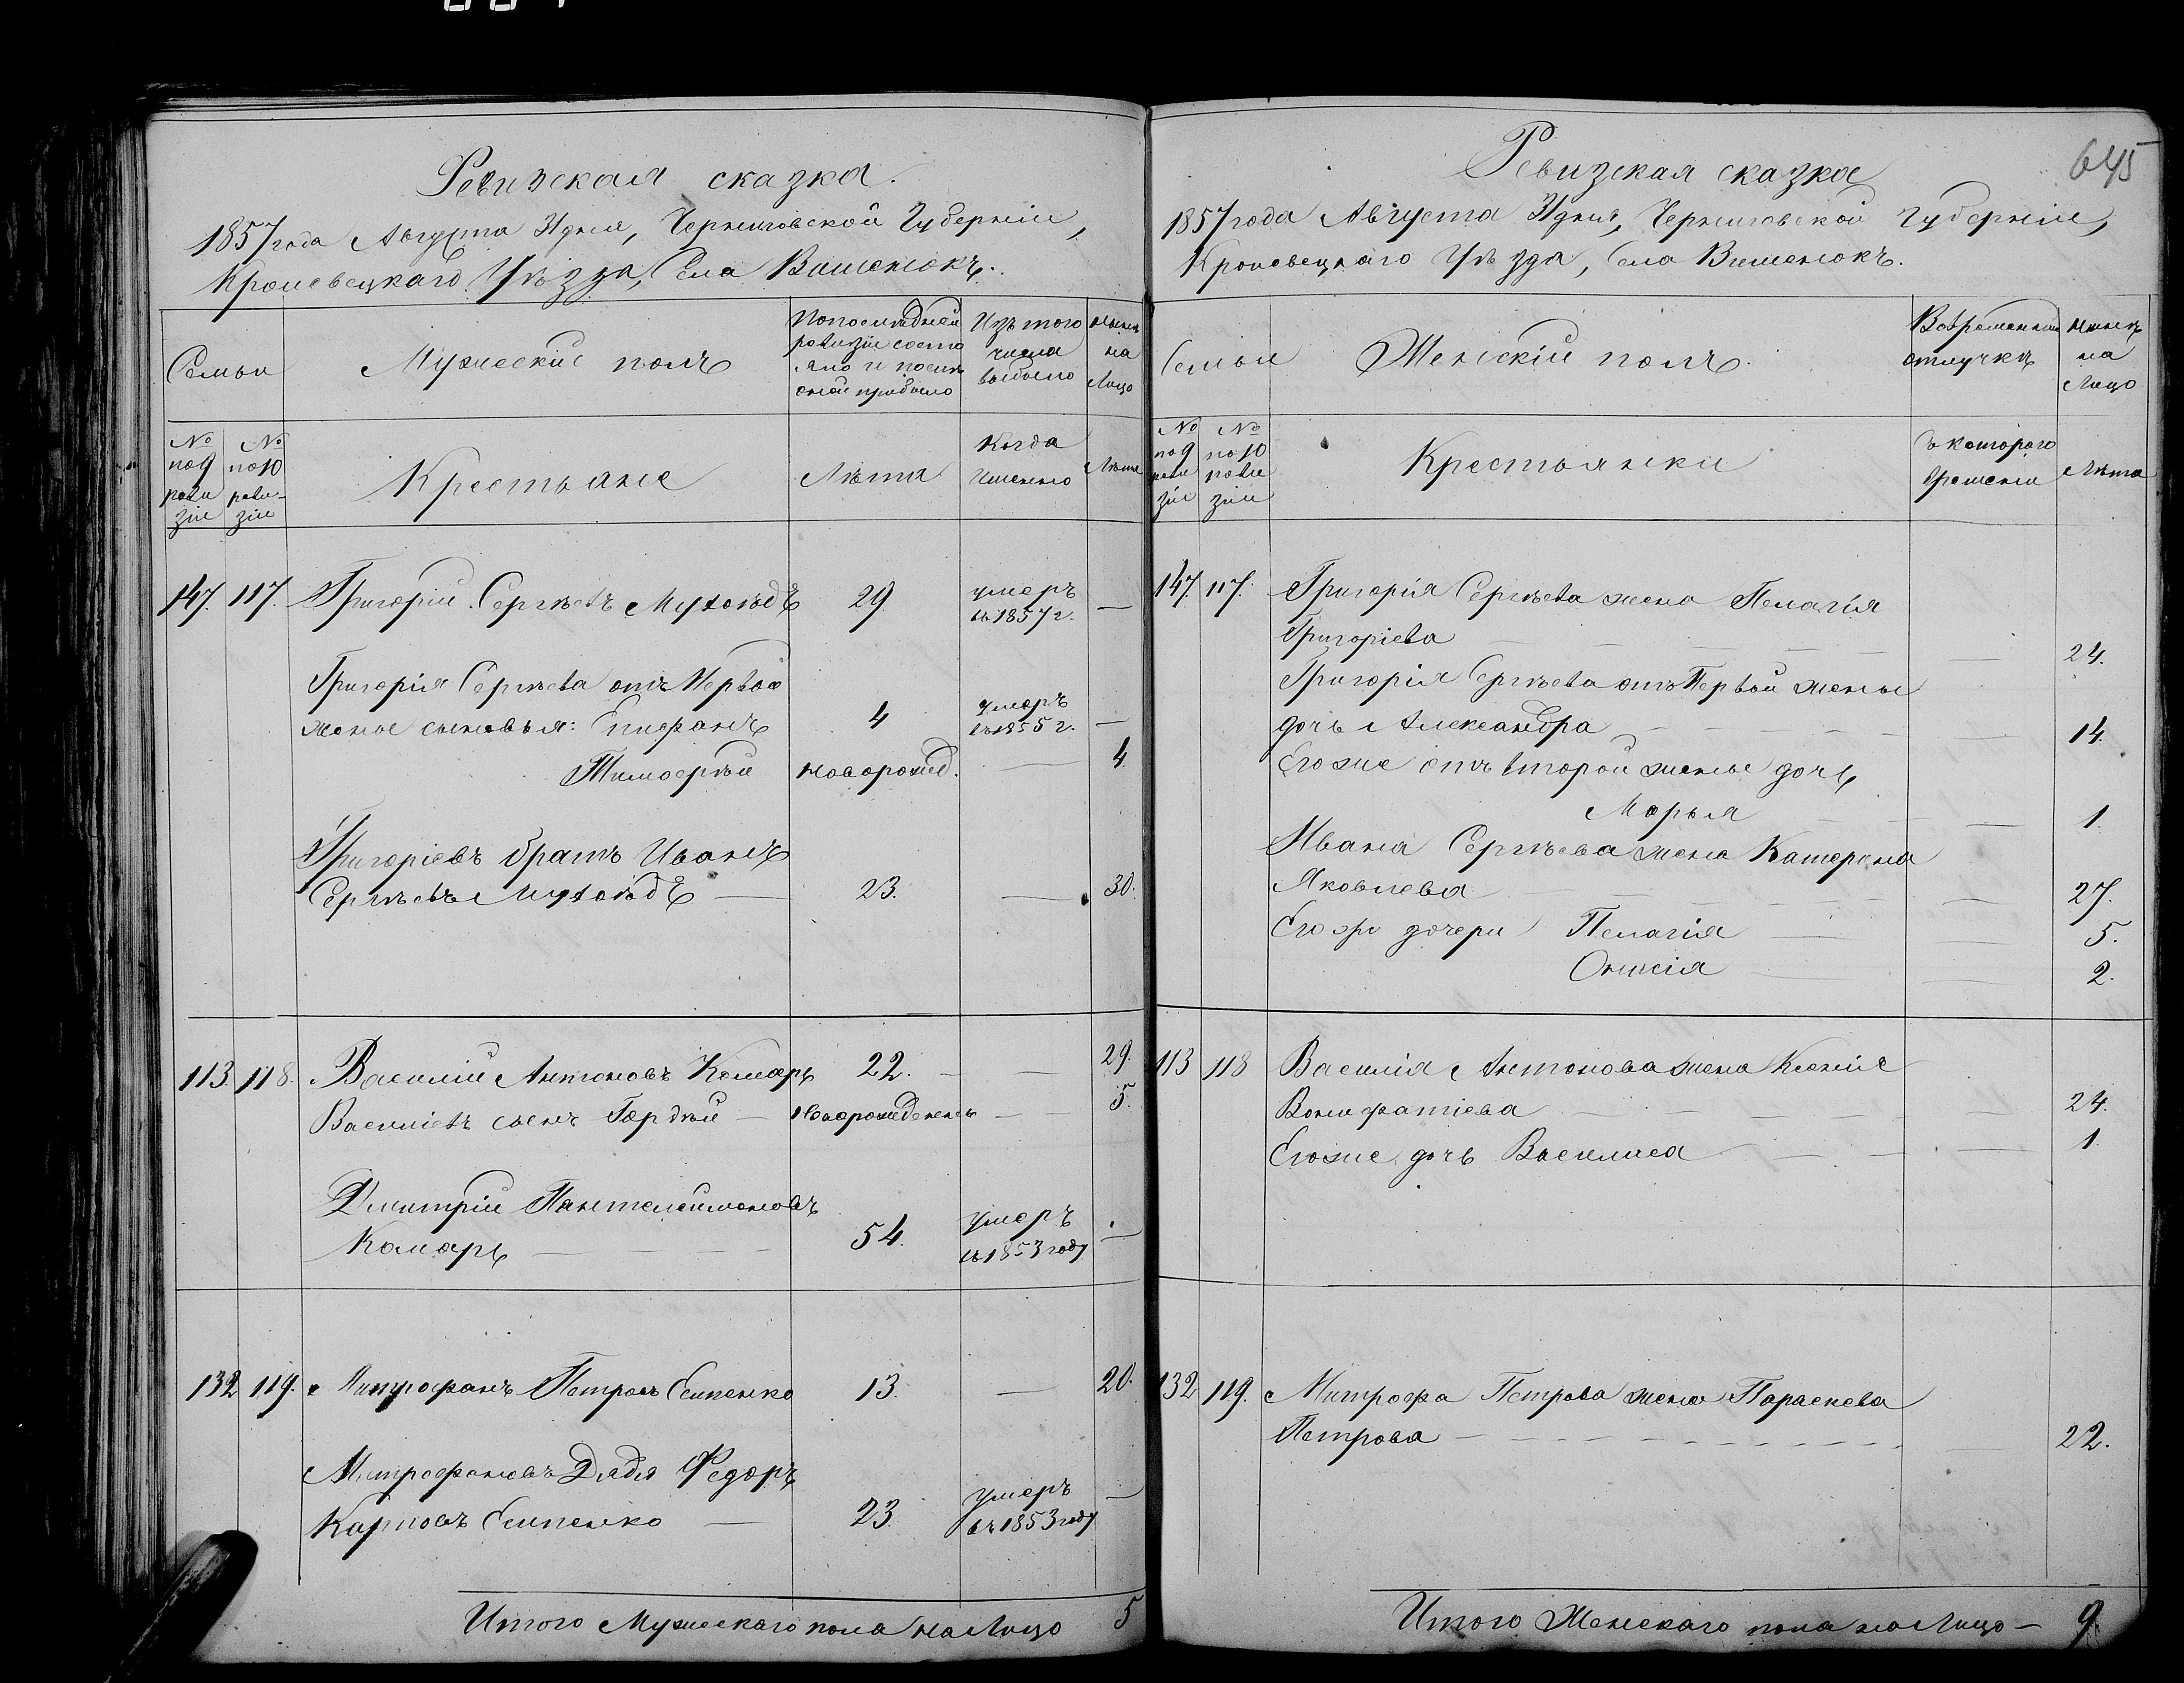 Ревизская сказка.
1857 года Августа 31 дня, Черниговской Губерніи,
Кролевецкаго Уѣзда, Села Вишенокъ.
Семьи
Мужескій полъ
По последней
ревизіи состо
яло и послѣ
оной прибыло
Изъ того
числа
выбыло
Нынѣ
на
Лицо
№
по 9
реви
зіи
№
по 10
реви-
зіи
Крестьяне
Лѣта
Когда
Именно
Лѣта
147. 117. Григорій Сергѣевъ Мухоѣдъ 29. умеръ —
въ 1857 г.
Григорія Сергѣева отъ Первой
жены сыновья: Епифанъ 4 умеръ —
въ 1855 г.
Тимофѣй новорожд. — 4
Григоріевъ братъ Иванъ
Сергѣевъ Мухоѣдъ — 23. — 30.
113. 118. Василій Антоновъ Комаръ 22. — — 29.
Василіевъ сынъ Гордѣй — Новорождененъ — 5.
Дмитрій Пантелеимоновъ
Комаръ — 54. умеръ —
въ 1853 году
132 119. Митрофанъ Петровъ Есипенко 13. — 20.
Митрофановъ Дядя Федоръ
Карповъ Есипенко — 23. Умеръ —
въ 1853 году
Итого Мужескаго пола на Лицо 5
645
Ревизская сказка
1857 года Августа 31 дня, Черниговской Губерніи,
Кролевецкаго Уѣзда, Села Вишенокъ.
Семьи
Женскій полъ.
Во временной
отлучкѣ
Нынѣ
на
Лицо
№
по 9
реви
зіи
№
по 10
реви
зіи
Крестьянки
Съ котораго
Времени
Лѣта
147. 117. Григорія Сергѣева жена Пелагія
Григоріева — — 24.
Григорія Сергѣева отъ Первой жены
дочь Александра — — 14.
Его же отъ второй жены дочь
Марья — — 1.
Ивана Сергѣева жена Катерена
Яковлева — — 27.
Его же дочери Пелагія — — 5.
Онисія — — 2.
113 118 Василія Антонова жена Ксенія
Вонифатіева — — 24.
Его же дочь Василиса — — 1
132 119. Митрофа Петрова жена Параскева
Петрова — — 22.
Итого Женскаго пола на Лицо — 9